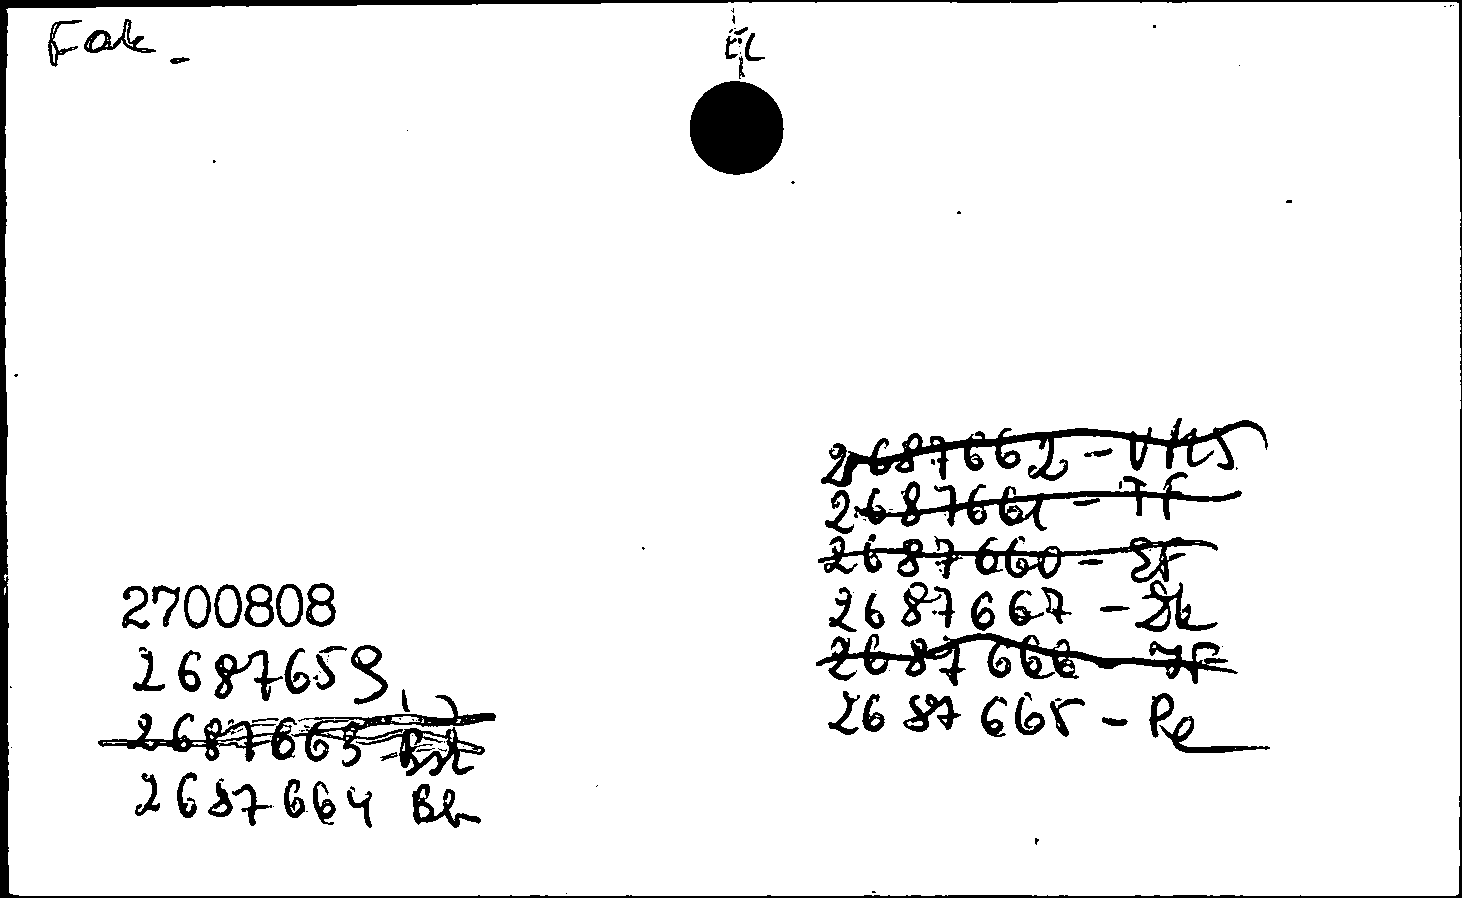 Fak.
EL
2687662 - VKS
2687661 - TF
2687660 - SF
2687667 - Sk
2687666 - JF
2687665 - Re
2700808
2687659
2687663 - Bst
2687664 Bb